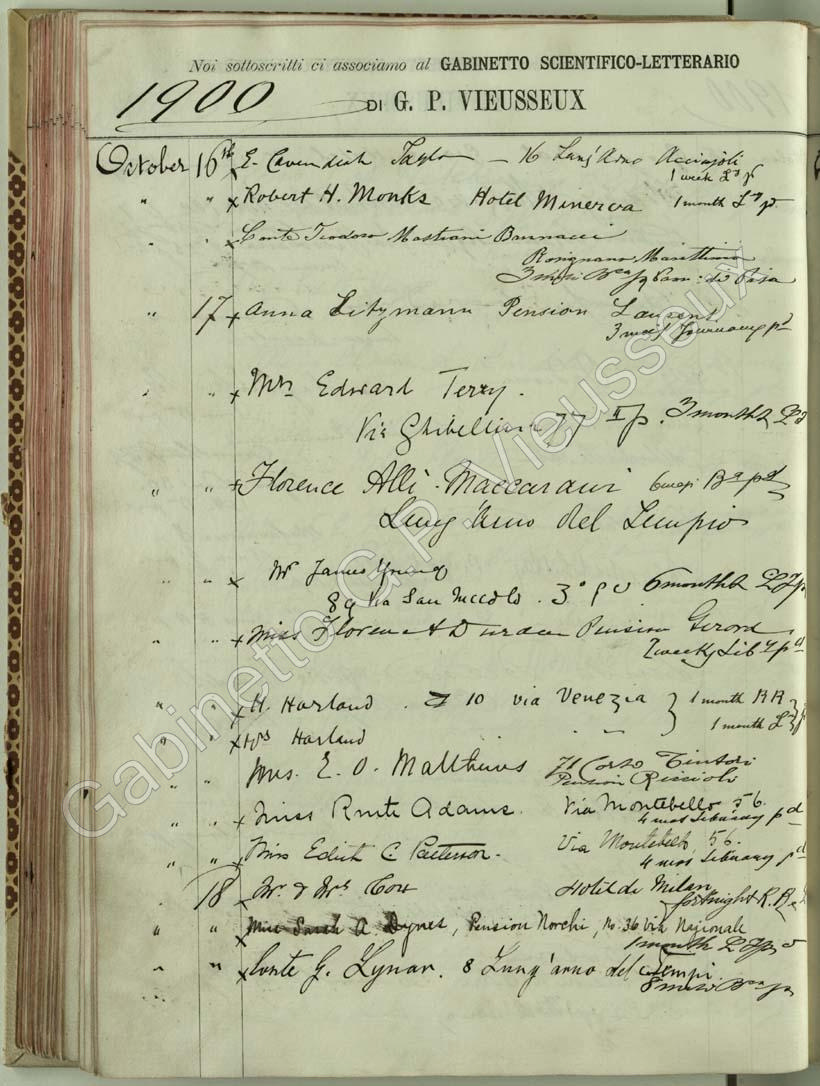 Noi sottoscritti ci associamo al GABINETTO SCIENTIFICO-LETTERARIO
1900 DI G. P. VIEUSSEUX
October 16th x E. Cavendish Taylor – 16 Lung'Arno Acciajoli
1 week
" " x Robert H. Monks Hotel Minerva 1 month
" " x Conte Teodoro Mastiani Brunacci
Rosignano Marittimo
3 mesi Pisa
" 17 x Anna Litzmann Pension Laurent
3 mesi
" " x Mrs Edward Terry.
Via Ghibellina 77 II p. 3 months
" " x Florence Alli-Maccarani 6 mesi
Lung'Arno del Tempio
" " x Mr James Young
89 Via San Niccolo. 3° 6 months
" " x Miss Florence Pension Girard
" " x H. Harland. 10 via Venezia } 1 month
" " x Mrs Harland " " 1 month
" " Mrs. E. O. Matthews 71 Corso Tintori
Pension Riccioli
" " x Miss Adams. Via Montebello 56.
4 mos
" " x Miss Edith C Patterson. Via Montebello, 56.
4 mos
18 x Mr & Mrs Cox Hotel de Milan
fortnight
" " x Miss Sarah A. Dynes, Pension Norchi, No. 36 Via Nazionale
1 month
" " x Conte G. Lynar. 8 Lung'arno del Tempio.
Gabinetto G. P. Vieusseux